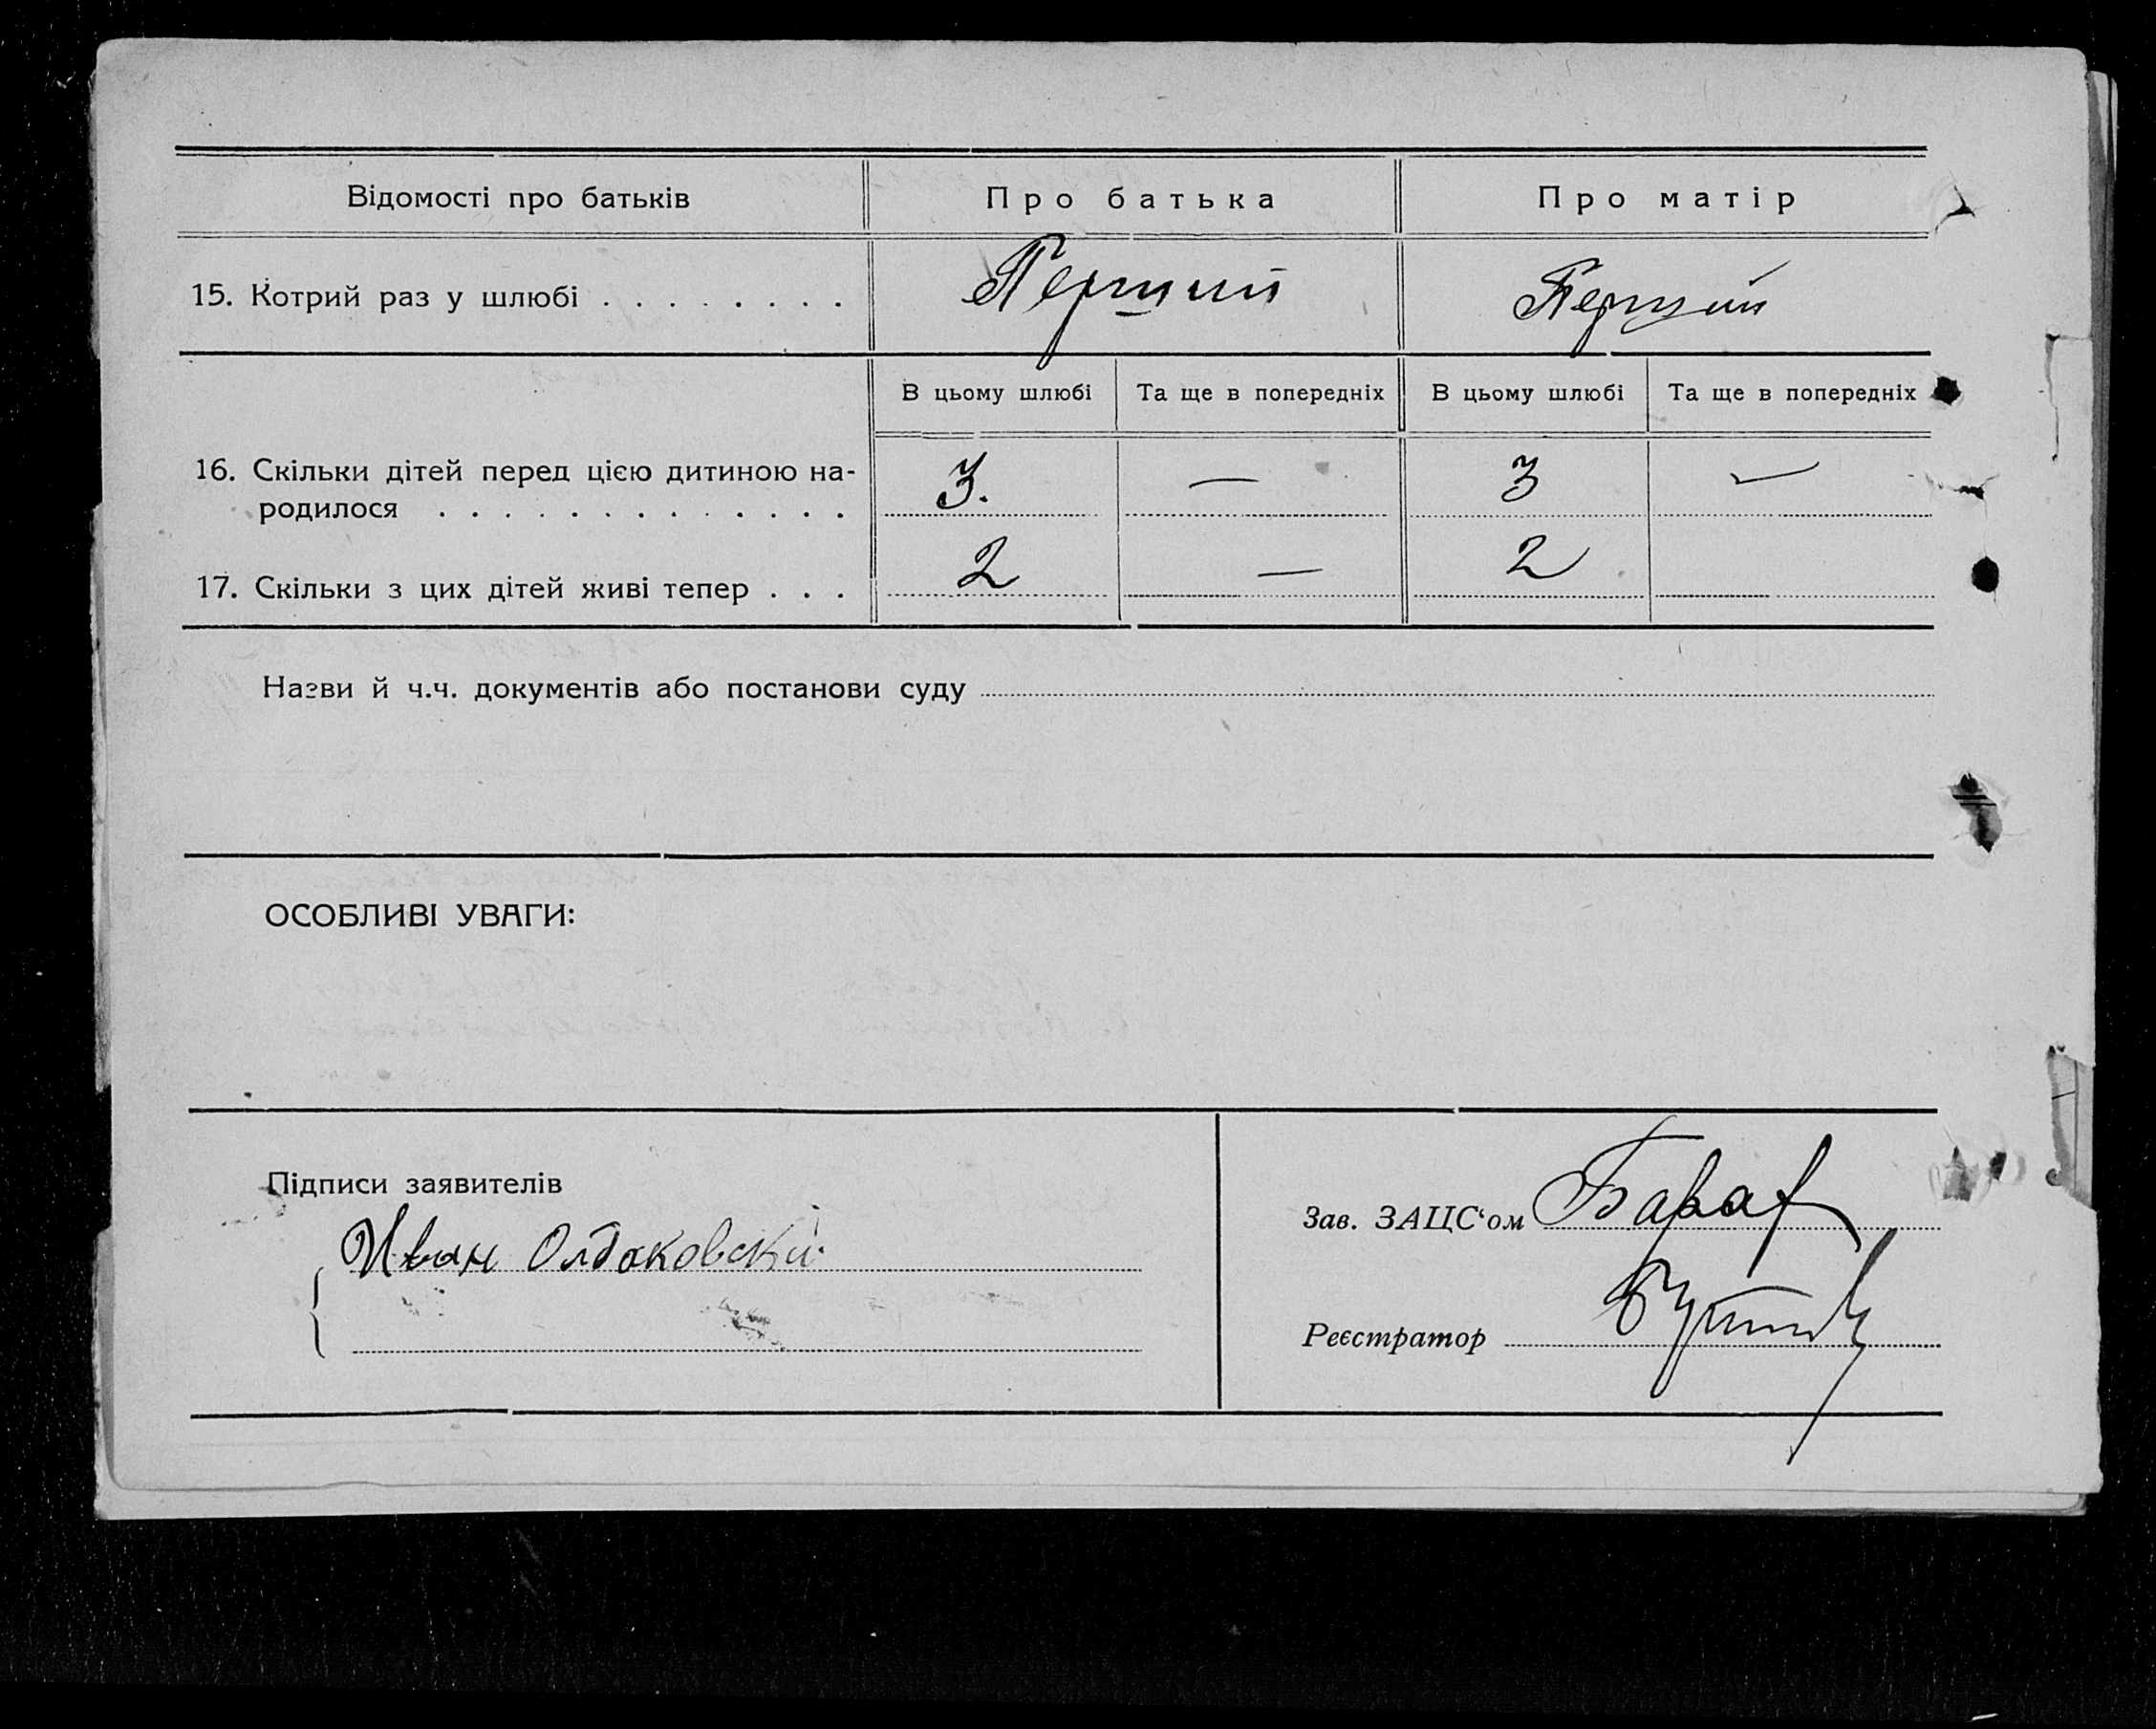 Відомості про батьків
Про батька
Про матір
15. Котрий раз у шлюбі . . . . . . . .
Перший
Перший
В цьому шлюбі
Та ще в попередніх
В цьому шлюбі
Та ще в попередніх
16. Скільки дітей перед цією дитиною на-
родилося . . . . . . . . . . . . .
3.
—
3
—
17. Скільки з цих дітей живі тепер . . .
2
—
2
Назви й ч.ч. документів або постанови суду
ОСОБЛИВІ УВАГИ:
Підписи заявителів
Иван
Зав. ЗАЦС‘ом
Реєстратор